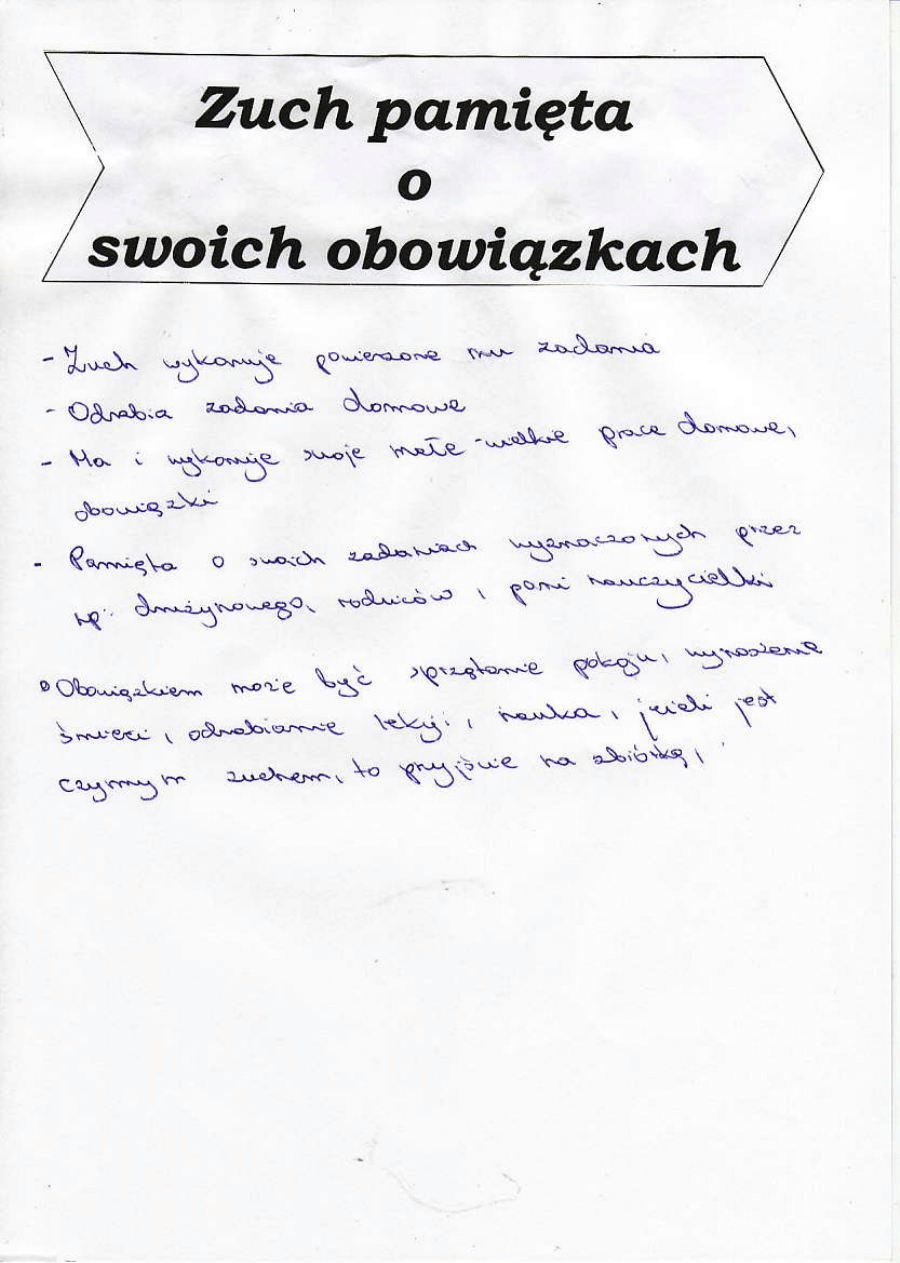 Zuch pamięta
o
swoich obowiązkach
- Zuch wykonuje powierzone mu zadania
- Odrabia zadania domowe
- Ma i wykonuje swoje małe-wielkie prace domowe,
obowiązki
- Pamięta o swoich zadaniach wyznaczonych przez
np: drużynowego, rodziców i pani nauczycielki
Obowiązkiem może być sprzątanie pokoju, wynoszenie
śmieci, odrabianie lekcji, nauka, jeżeli jest
czynnym zuchem, to przyjście na zbiórkę,